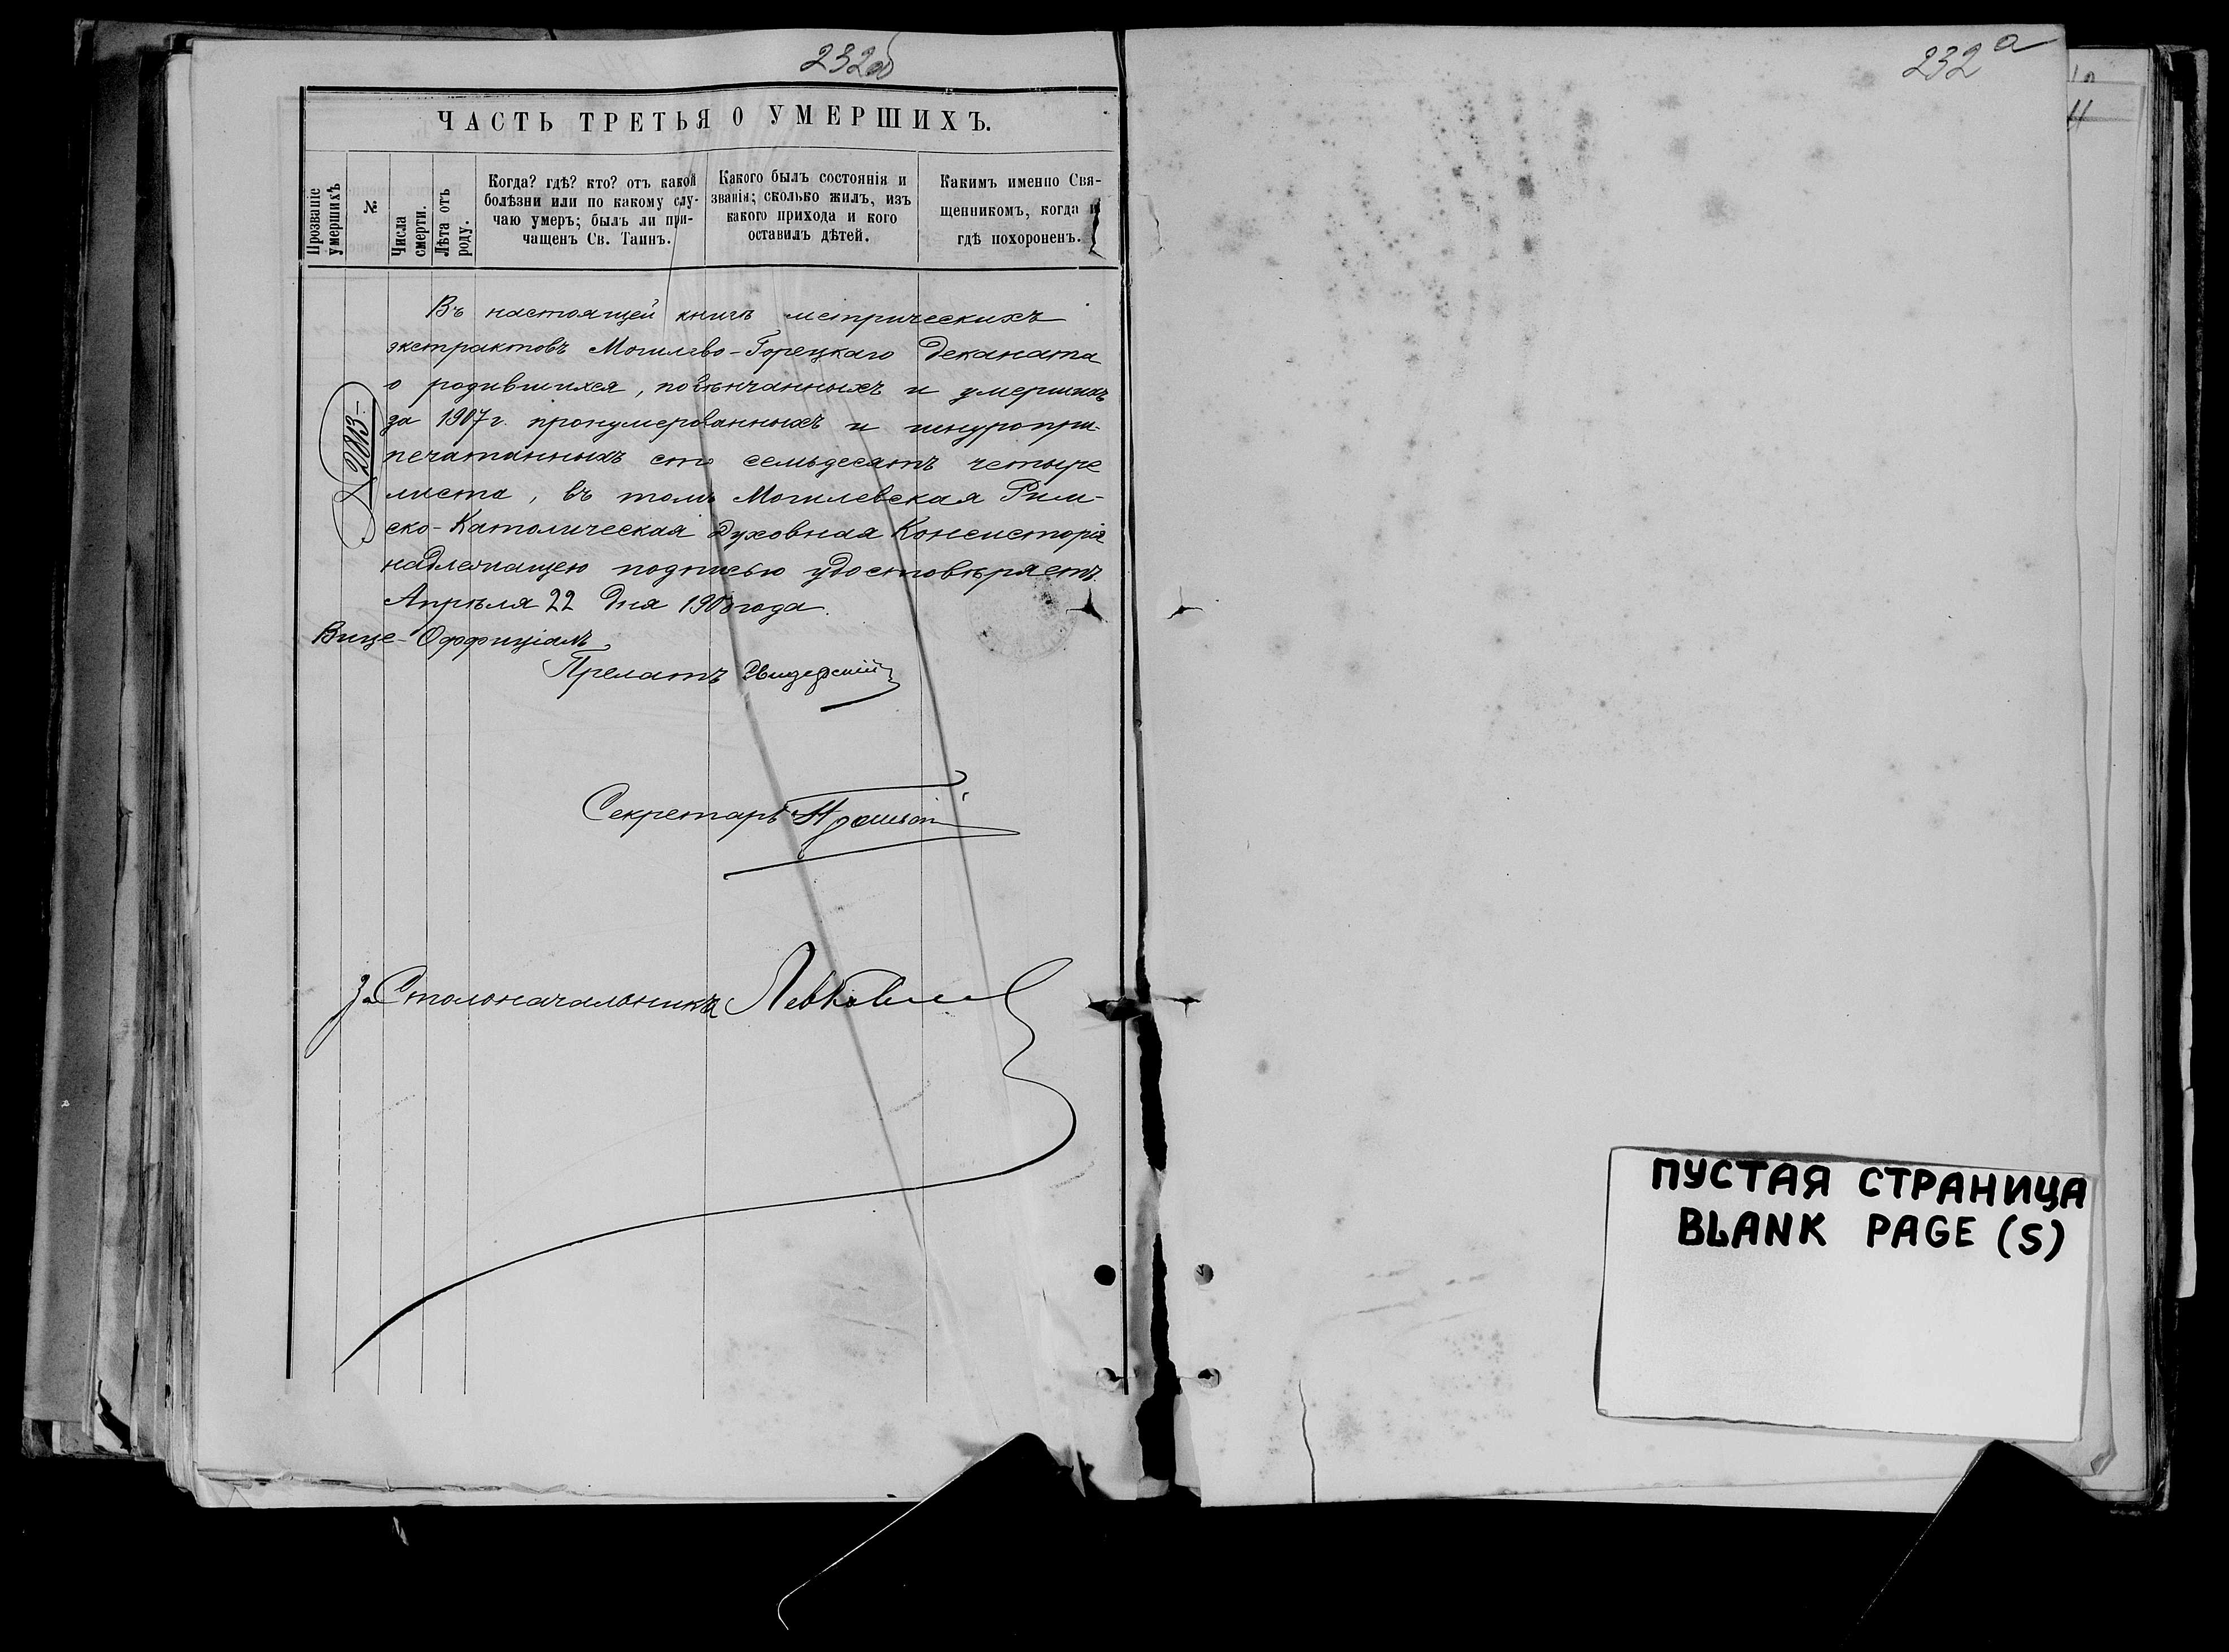 232об
ЧАСТЬ ТРЕТЬЯ О УМЕРШИХЪ.
Прозваніе умершихъ
№
Числа смерти.
Лѣта отъ роду.
Когда? гдѣ? кто? отъ какой
болѣзни или по какому слу-
чаю умеръ; былъ ли при-
чащенъ Св. Таинъ.
Какого былъ состоянія и
званія; сколько жилъ, изъ
какого прихода и кого
оставилъ дѣтей.
Какимъ именно Свя-
щенникомъ, когда и
гдѣ похороненъ.
Въ настоящей книгѣ метрическихъ
экстрактовъ Могилево-Горецкаго деканата
о родившихся, повѣнчанныхъ и умершихъ
за 1907 г. пронумерованныхъ и шнуропри-
печатанныхъ сто семьдесятъ четыре
листа, въ томъ Могилевская Рим-
ско-Католическая Духовная Консисторія
надлежащею подписью удостовѣряетъ.
Апрѣля 22 дня 1908 года.
2813
Вице-Оффиціалъ
Прелатъ
Секретарь
За Столоначальника
232а
ПУСТАЯ СТРАНИЦА
BLANK PAGE (S)